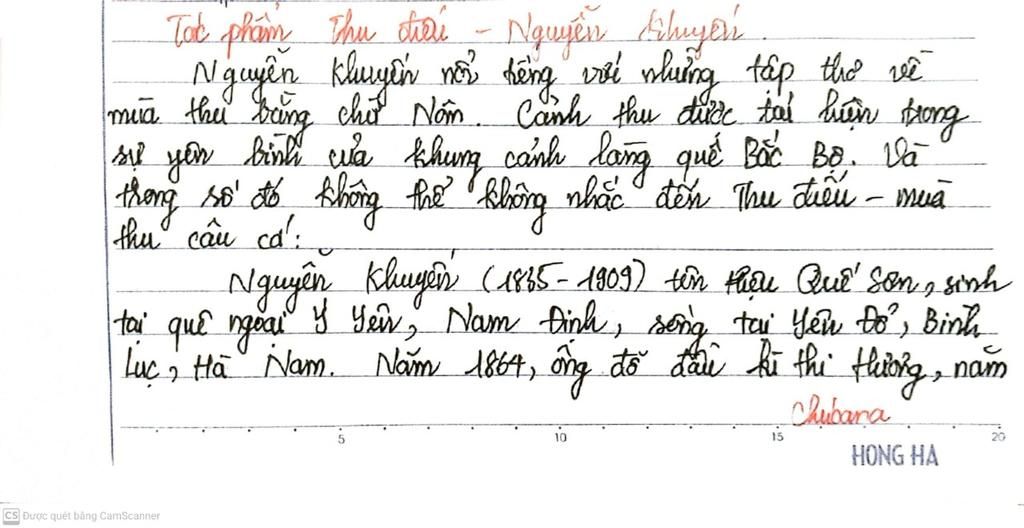 Tác phẩm Thu điếu - Nguyễn Khuyến.
Nguyễn Khuyến nổi tiếng với những tập thơ về
mùa thu bằng chữ Nôm. Cảnh thu được tái hiện trong
sự yên bình của khung cảnh làng quê Bắc Bộ. Và
trong số đó không thể không nhắc đến Thu điếu - mùa
thu câu cá:
Nguyễn Khuyến (1835-1909) tên hiệu Quế Sơn, sinh
tại quê ngoại Ý Yên, Nam Định, sống tại Yên Đổ, Bình
Lục, Hà Nam. Năm 1864, ông đỗ đầu kì thi Hương, năm
Chubana
5 10 15 20
HONG HA
CS Được quét bằng CamScanner